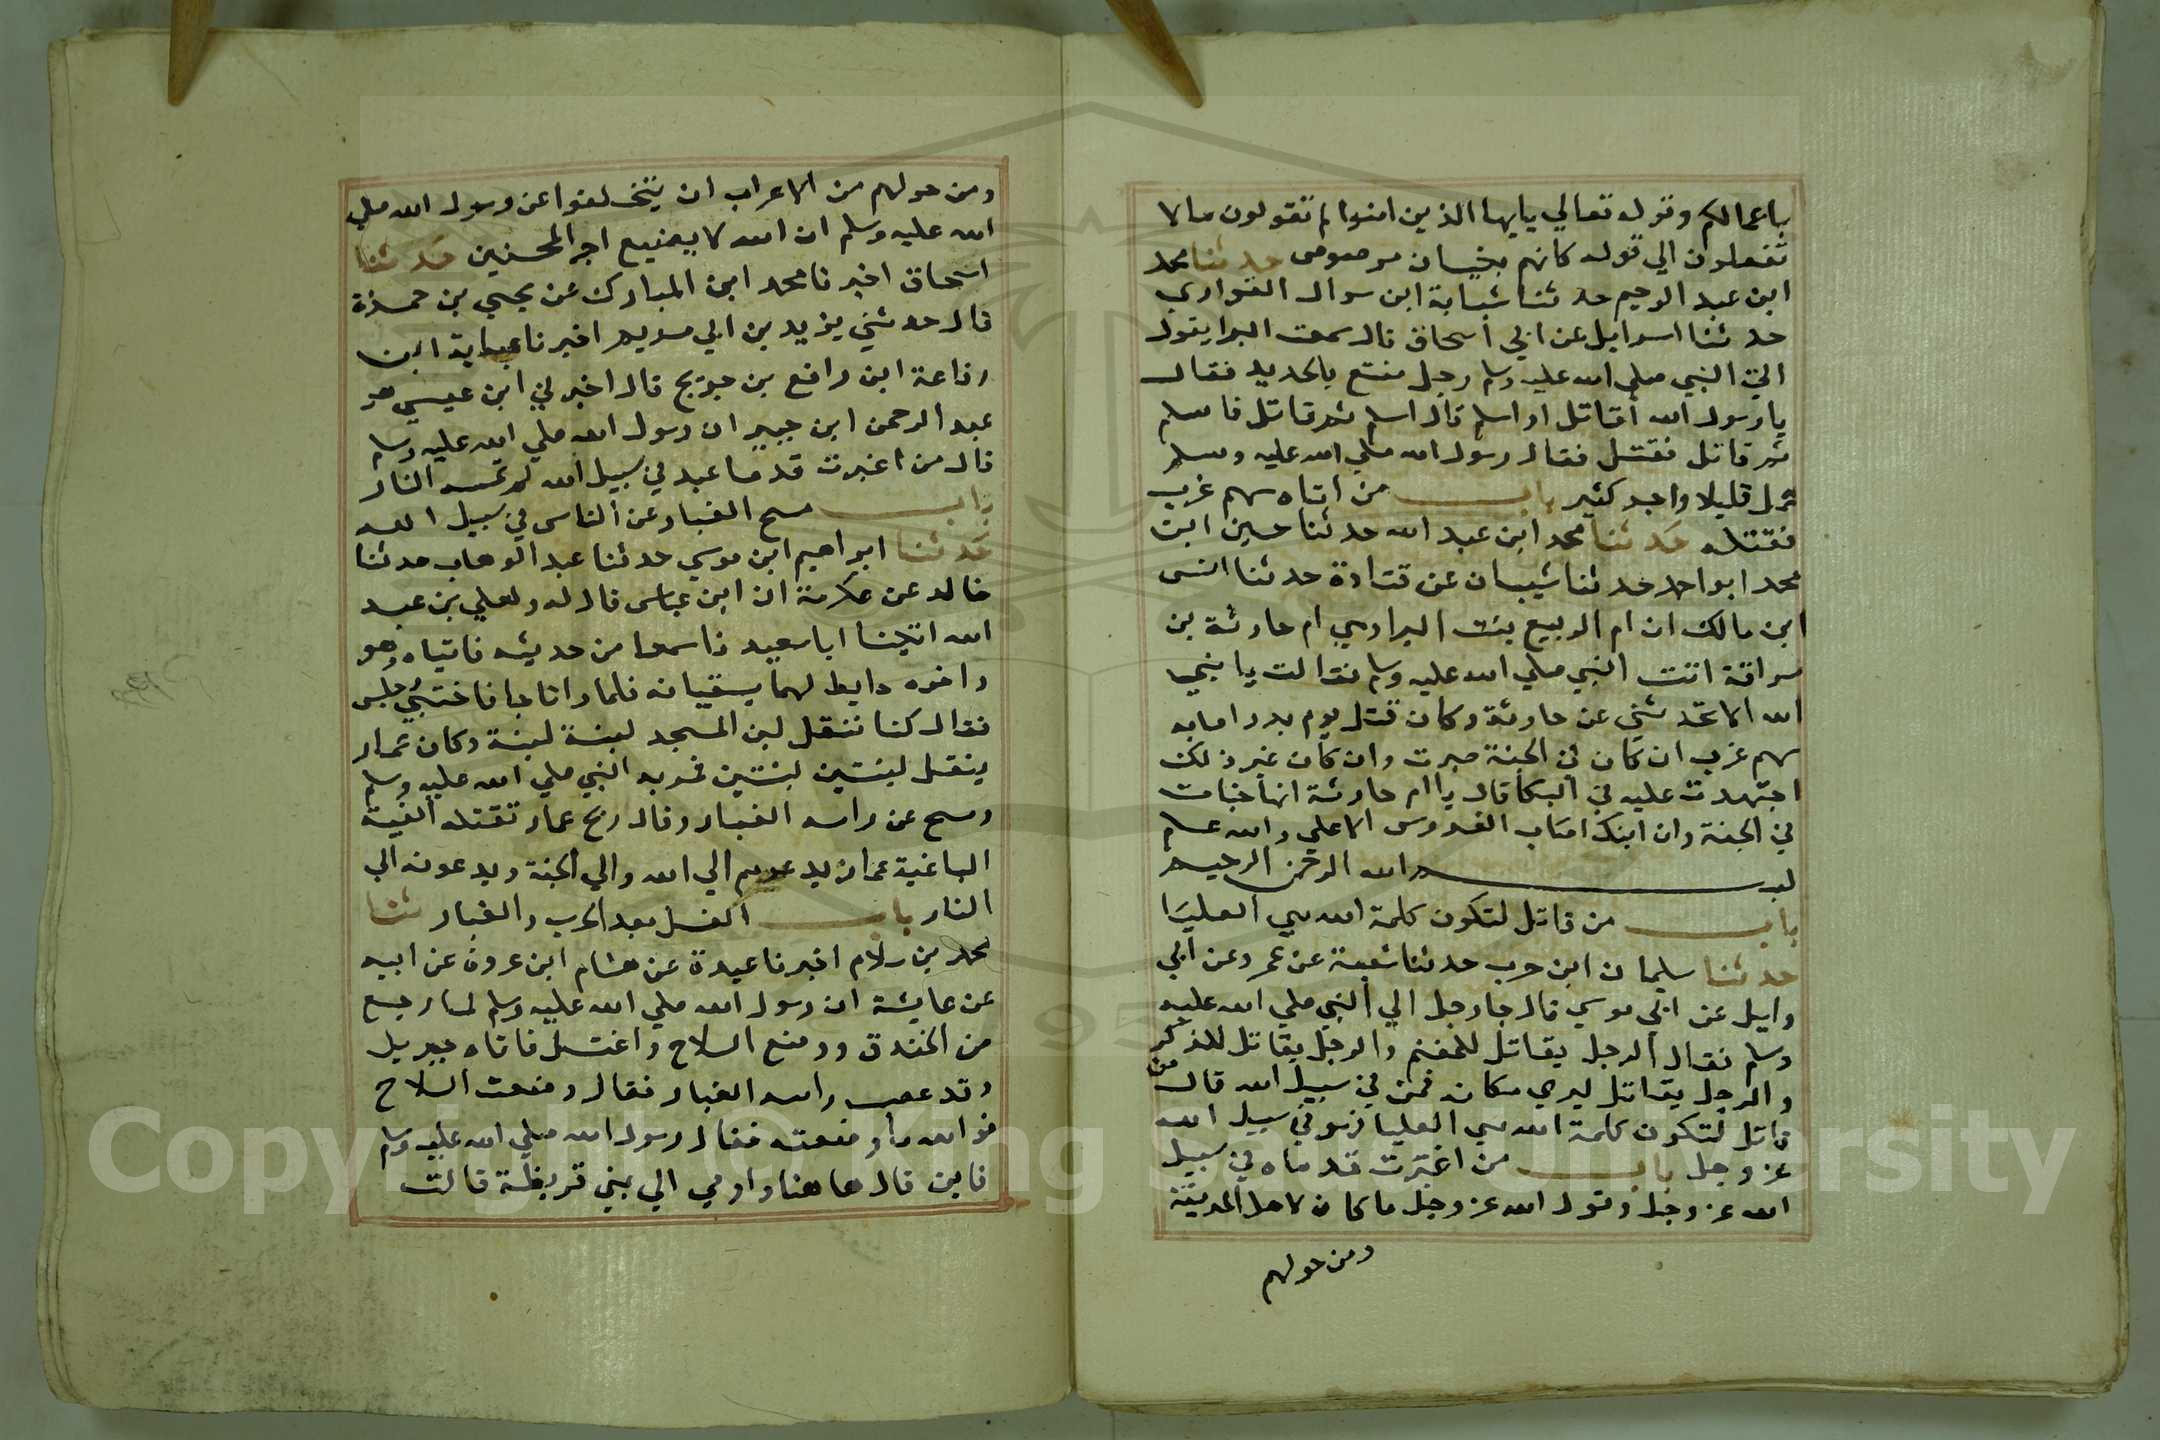 باعمالكم وقوله تعالي يايها الذين امنوا لم تقولون مالا
تفعلون الي قوله كانهم بنيان مرصوص حدثنا محمد
ابن عبد الرحيم حدثنا شبابة ابن سوار الفزاري
حدثنا اسرايل عن ابي اسحاق قال سمعت البرا يقول
اتي النبي صلي الله عليه وسلم رجل مقنع بالحديد فقال
يا رسول الله أقاتل او اسلم قال اسلم ثم قاتل فاسلم
ثم قاتل فقتل فقال رسول الله صلي الله عليه وسلم
عمل قليلا واجر كثير باب من اتاه سهم غرب
فقتله حدثنا محمد ابن عبد الله حدثنا حسين ابن
محمد ابو احمد حدثنا شيبان عن قتادة حدثنا انس
ابن مالك ان ام الربيع بنت البرا وهي ام حارثة بن
سراقة اتت النبي صلي الله عليه وسلم فقالت يا نبي
الله الا تحدثني عن حارثة وكان قتل يوم بدر اصابه
سهم غرب ان كان في الجنة صبرت وان كان غير ذلك
اجتهدت عليه في البكا قال يا ام حارثة انها جنات
في الجنة وان ابنك اصاب الفردوس الاعلي والله علم
بسم الله الرحمن الرحيم
باب من قاتل لتكون كلمة الله هي العليا
حدثنا سليمان ابن حرب حدثنا شعبة عن عمرو عن ابي
وايل عن ابي موسي قال جا رجل الي النبي صلي الله عليه
وسلم فقال الرجل يقاتل للمغنم والرجل يقاتل للذكر
والرجل يقاتل ليري مكانه فمن في سبيل الله قال من
قاتل لتكون كلمة الله هي العليا فهو في سبيل الله
عز وجل باب من اغبرت قدماه في سبيل
الله عز وجل وقول الله عز وجل ما كان لاهل المدينة
ومن حولهم
ومن حولهم من الاعراب ان يتخلفوا عن رسول الله صلي
الله عليه وسلم ان الله لا يضيع اجر المحسنين حدثنا
اسحاق اخبرنا محمد ابن المبارك عن يحيي بن حمزة
قال حدثني يزيد بن ابي مريم اخبرنا عباية ابن
رفاعة ابن رافع بن خديج قال اخبرني ابن عيسي هو
عبد الرحمن ابن جبير ان رسول الله صلي الله عليه وسلم
قال من اغبرت قدما عبد في سبيل الله لم تمسه النار
باب مسح الغبار عن الناس في سبيل الله
حدثنا ابراهيم ابن موسي حدثنا عبد الوهاب حدثنا
خالد عن عكرمة ان ابن عباس قال له ولعلي بن عبد
الله اتيا ابا سعيد فاسمعا من حديثه فاتياه وهو
واخوه حايط لهما يسقيانه فلما رانا جا فاختبي وجلس
فقال كنا ننقل لبن المسجد لبنة لبنة وكان عمار
ينقل لبنتين لبنتين فمر به النبي صلي الله عليه وسلم
ومسح عن راسه الغبار وقال ويح عمار تقتله الفية
الباغية عمار يدعوهم الي الله والي الجنة ويدعونه الي
النار باب الغسل بعد الحرب والغبار ثنا
محمد بن سلام اخبرنا عبدة عن هشام ابن عروة عن ابيه
عن عايشة ان رسول الله صلي الله عليه وسلم لما رجع
من الخندق ووضع السلاح واغتسل فاتاه جبريل
وقد عصب راسه الغبار فقال وضعت السلاح
فوالله ما وضعته فقال رسول الله صلي الله عليه وسلم
فاين قال هاهنا واومي الي بني قريظة قالت
Copyright © King Saud University